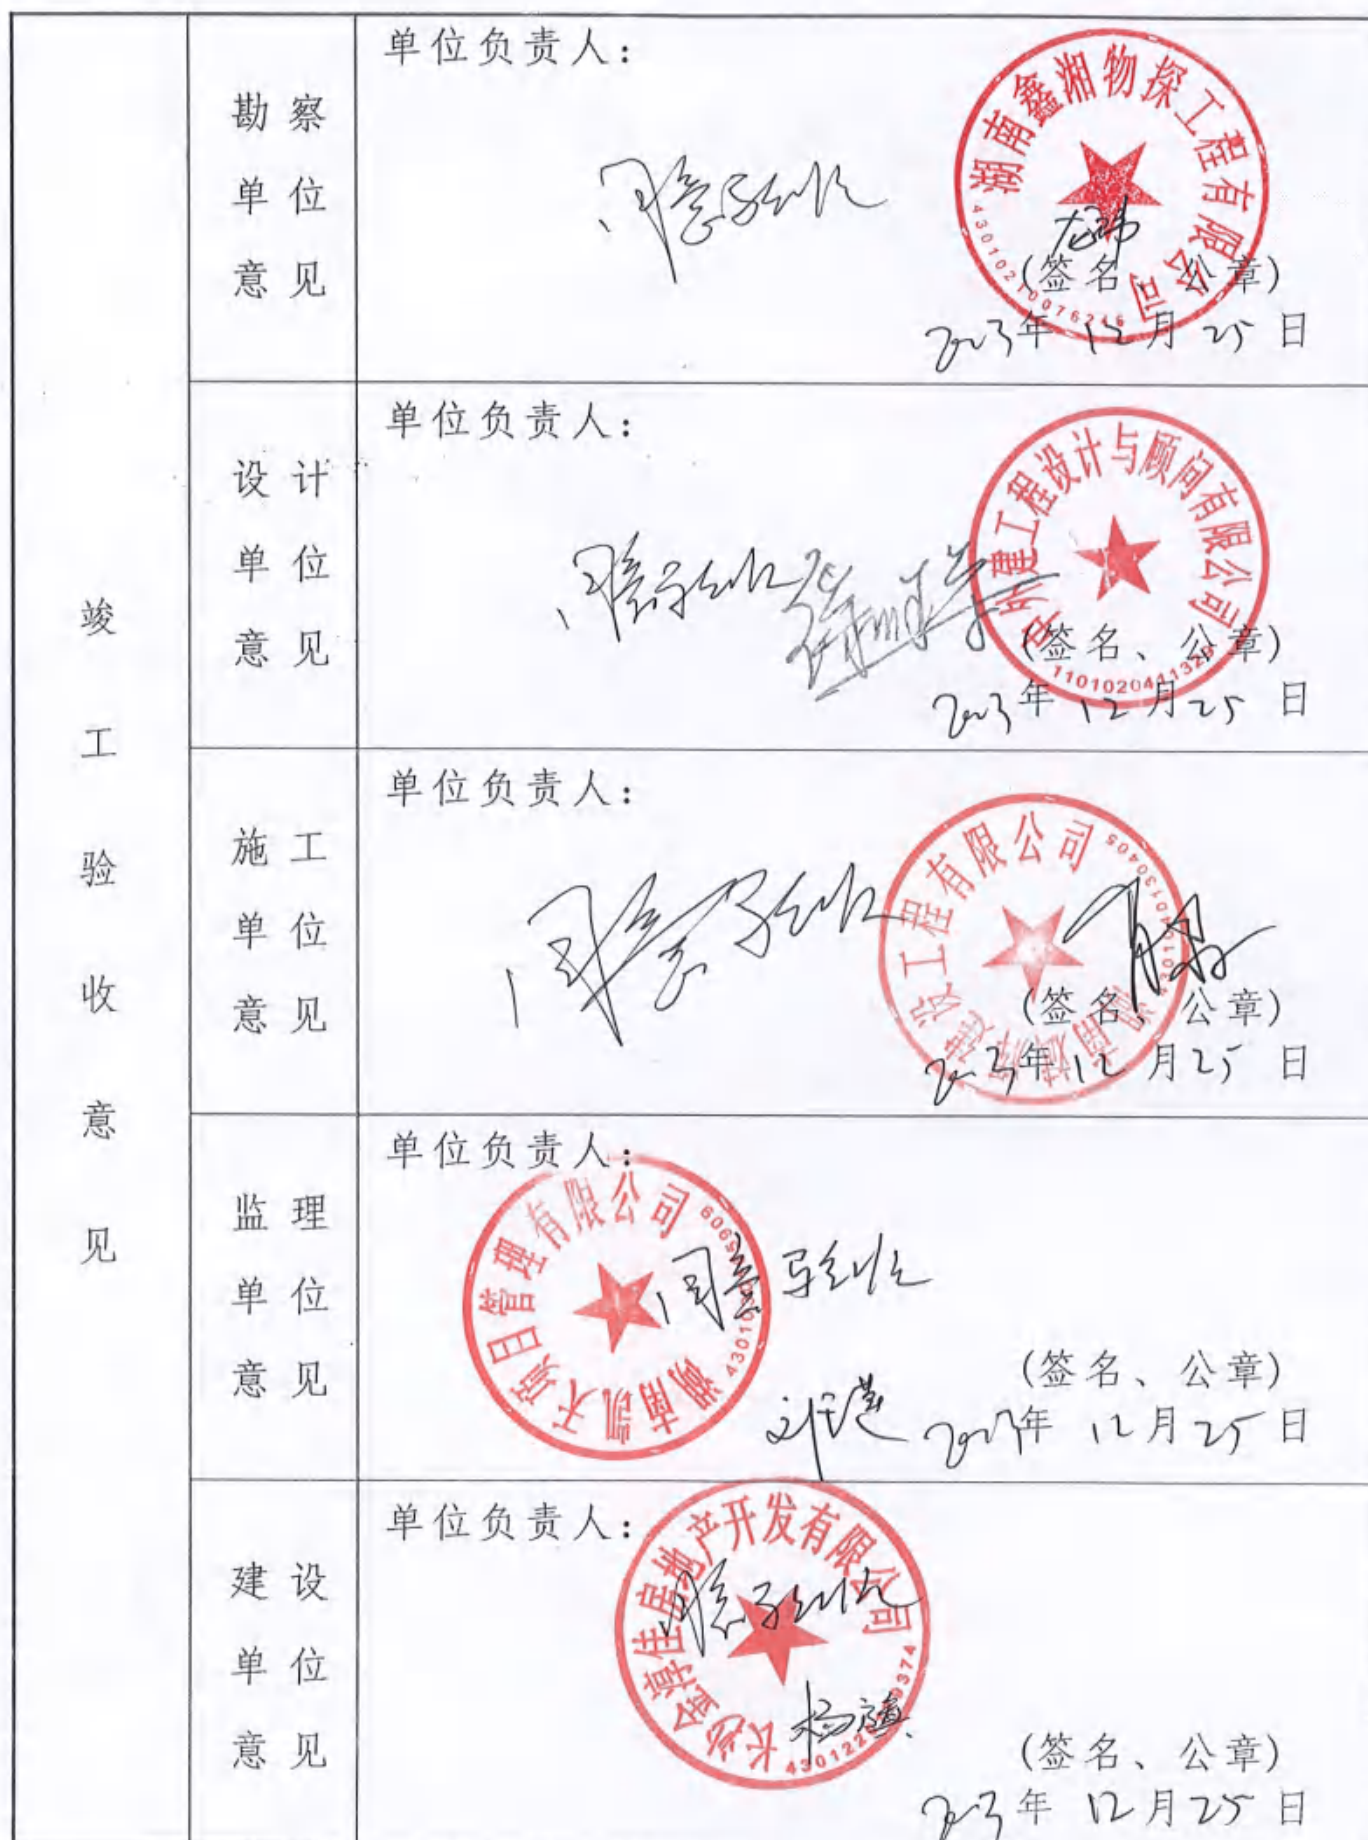 竣工验收意见
勘察
单位
意见
单位负责人：
同意验收
湖南鑫湘物探工程有限公司
(签名、公章)
2023年12月25日
设计
单位
意见
单位负责人：
同意验收
中外建工程设计与顾问有限公司
(签名、公章)
2023年12月25日
施工
单位
意见
单位负责人：
同意验收
建设工程有限公司
(签名、公章)
2023年12月25日
监理
单位
意见
单位负责人：
同意验收
湖南凯天项目管理有限公司
(签名、公章)
2023年12月25日
建设
单位
意见
单位负责人：
同意验收
房地产开发有限公司
(签名、公章)
2023年12月25日